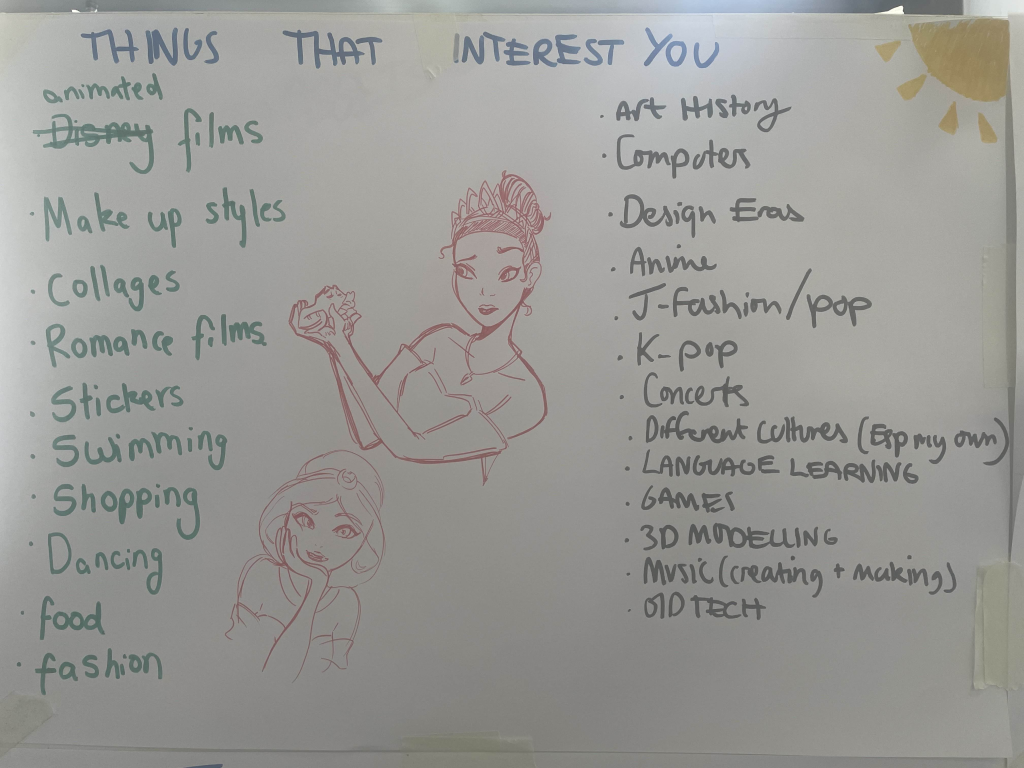 THINGS THAT INTEREST YOU
animated
Disney films
· Make up styles
· Collages
· Romance films
· Stickers
· Swimming
· Shopping
· Dancing
· food
· fashion
· Art History
· Computers
· Design Eras
· Anime
· J-Fashion/pop
· K-pop
· Concerts
· Different cultures (Esp my own)
· LANGUAGE LEARNING
· GAMES
· 3D MODELLING
· Music (creating + making)
· OLD TECH